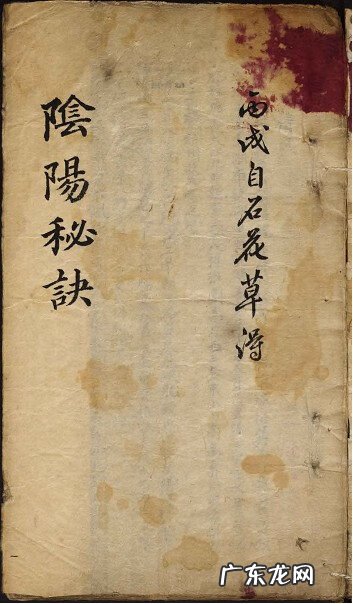 丙戌自石花草得
陰陽秘訣
广东龙网